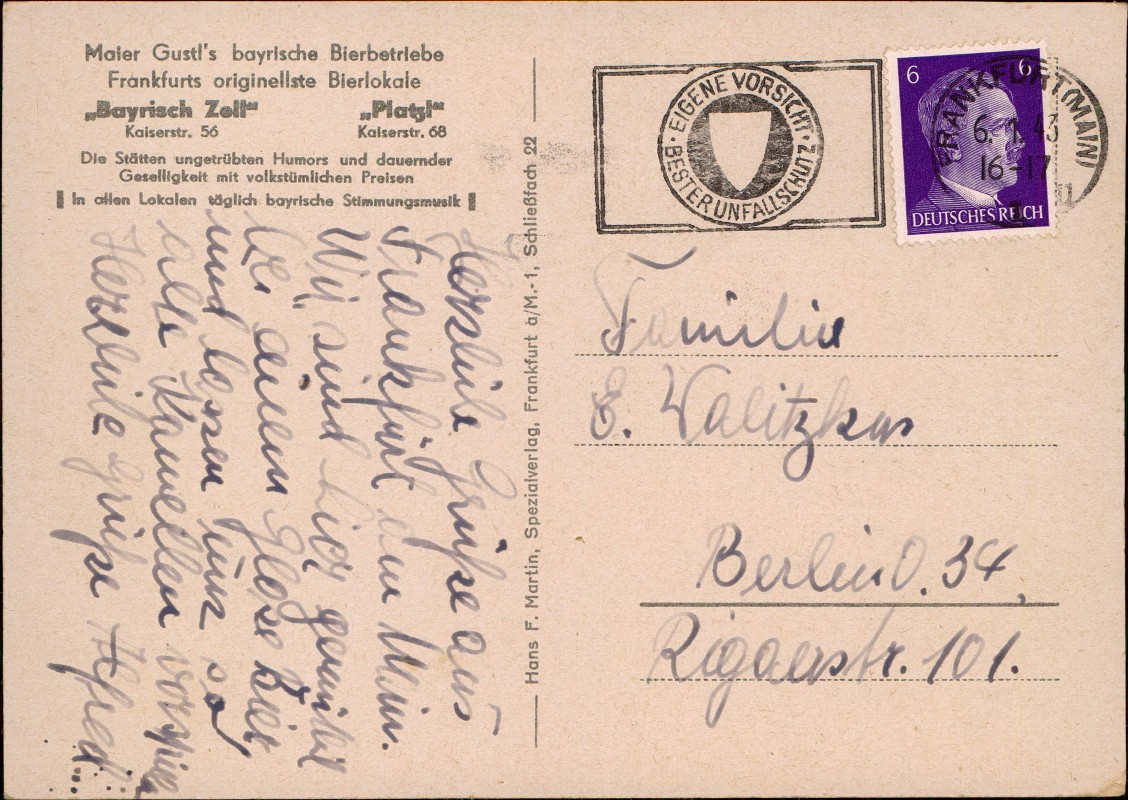 Maier Gustl's bayrische Bierbetriebe
Frankfurts originellste Bierlokale
„Bayrisch Zell“ „Platzl“
Kaiserstr. 56 Kaiserstr. 68
Die Stätten ungetrübten Humors und dauernder
Geselligkeit mit volkstümlichen Preisen
In allen Lokalen täglich bayrische Stimmungsmusik
Herzliche Grüße aus
Frankfurt am Main.
Wir sind hier gemütl
bei einem Glase Bier
und lassen uns so
alte Kamellen vorspiel
Herzliche Grüße Alfred
Hans F. Martin, Spezialverlag, Frankfurt a/M.-1, Schließfach 22
EIGENE VORSICHT
BESTER UNFALLSCHUTZ
6 6
DEUTSCHES REICH
FRANKFURT (MAIN)
6. 1. 43
16-17
Familie
E. Walitzkus
Berlin O. 34,
Rigaerstr. 101.